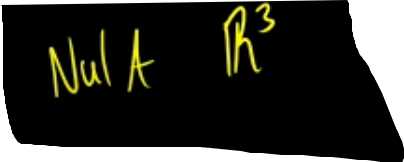 Nul A ℝ³